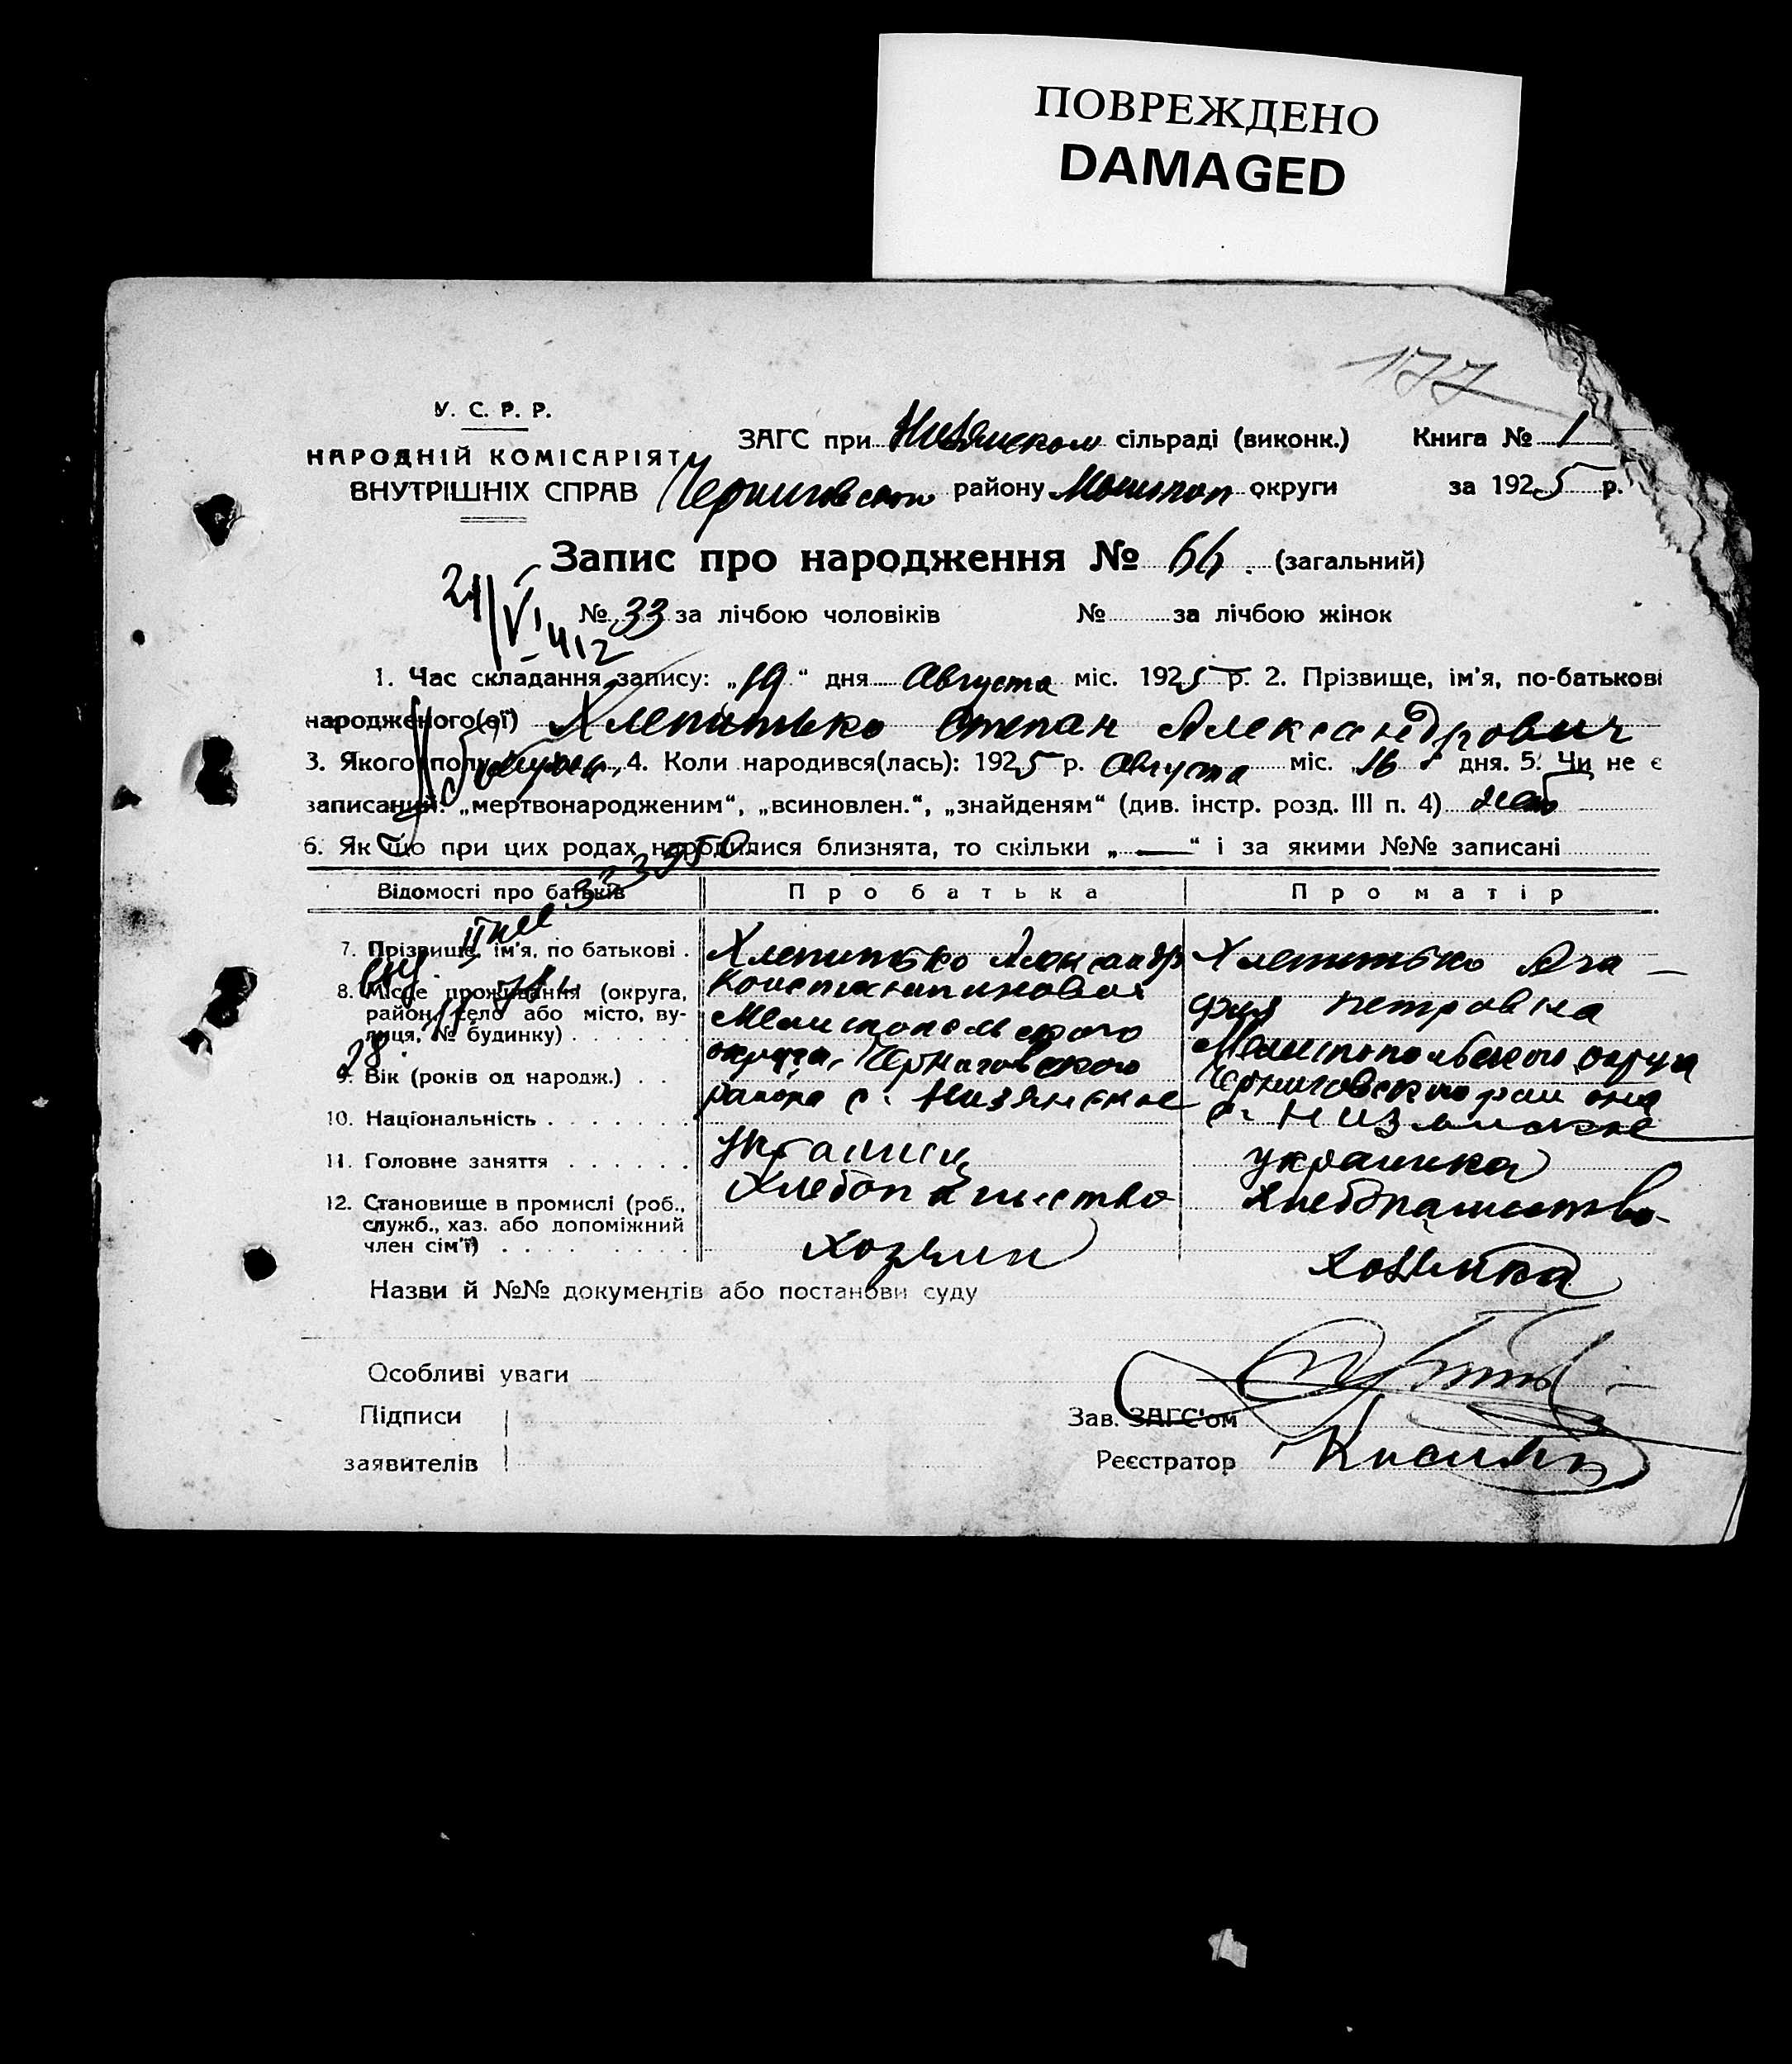 ПОВРЕЖДЕНО
DAMAGED
177
У. С. Р. Р.
НАРОДНІЙ КОМІСАРІЯТ
ВНУТРІШНІХ СПРАВ
ЗАГС при Низянском сільраді (виконк.) Книга № 1
Черниговском району Мелитоп округи за 1925 р.
Запис про народження № 66. (загальний)
№ 33 за лічбою чоловіків № за лічбою жінок
1. Час складання запису: „19“ дня Августа міс. 1925 р. 2. Прізвище, ім'я, по-батькові
народженого(ої) Хлепитько Степан Александрович
3. Якого полу 4. Коли народився(лась): 1925 р. Августа міс. 16 дня. 5. Чи не є
записаний: „мертвонародженим“, „всиновлен.“, „знайденям“ (див. інстр. розд. III п. 4) нет
6. Як що при цих родах народилися близнята, то скільки „—“ і за якими №№ записані
Відомості про батьків Про батька Про матір
7. Прізвище, ім'я, по батькові . Хлепитько Александр Хлепитько Ага-
Константинович фия Петровна
8. Місце проживання (округа,
район, село або місто, ву-
лиця, № будинку) . . . . . .
Мелитопольского
округа, Черниговского
района с. Низянское
Мелитопольского округа
Черниговского района
с. Низянское
9. Вік (років од народж.) . . 28
10. Національність . . . . . . . Украинец украинка
11. Головне заняття . . . . . . Хлебопашество хлебопашество
12. Становище в промислі (роб.,
служб., хаз. або допоміжний
член сім'ї) . . . . . . . . .
хозяин хозяйка
Назви й №№ документів або постанови суду
Особливі уваги
Підписи
заявителів
Зав. ЗАГС'ом
Реєстратор